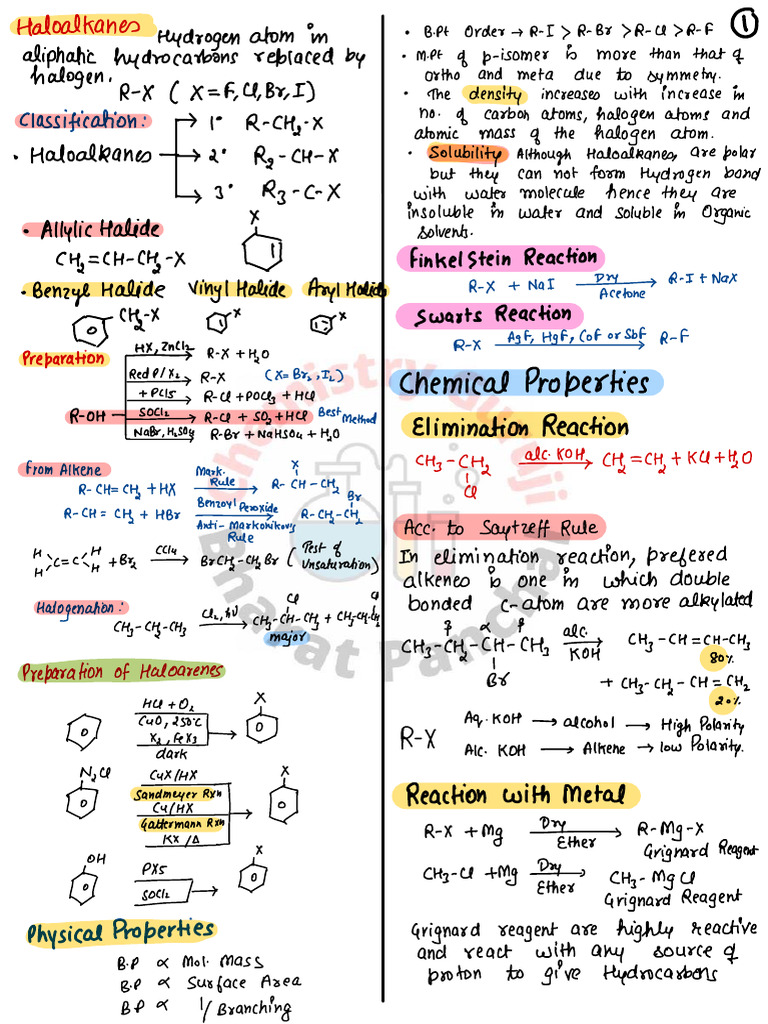 Haloalkanes Hydrogen atom in
aliphatic hydrocarbons replaced by
halogen.
R-X ( X = F, Cl, Br, I )
Classification:
1° R-CH2-X
• Haloalkanes 2° R2-CH-X
3° R3-C-X
• Allylic Halide
X
CH2=CH-CH2-X
• Benzyl Halide Vinyl Halide Aryl Halide
CH2-X X X
Preparation
HX, ZnCl2 R-X + H2O
Red P/X2 R-X (X= Br2, I2)
+ PCl5 R-Cl + POCl3 + HCl
R-OH SOCl2 R-Cl + SO2 + HCl Best Method
NaBr, H2SO4 R-Br + NaHSO4 + H2O
From Alkene
R-CH=CH2 + HX Mark. Rule R-CH-CH3
X
R-CH=CH2 + HBr Benzoyl Peroxide R-CH2-CH2
Br
Anti-Markonikov's Rule
H H
C=C + Br2 CCl4 BrCH2-CH2Br (Test of Unsaturation)
H H
Halogenation:
CH3-CH2-CH3 Cl2, hν CH3-CH-CH3 + CH3-CH2-CH2
Cl Cl
major
Preparation of Haloarenes
HCl + O2
CuO, 250°C X
X2, FeX3
dark
N2Cl CuX/HX X
Sandmeyer Rxn
Cu/HX
Gattermann Rxn
KX/Δ
OH PX5 X
SOCl2
Physical Properties
B.P ∝ Mol. Mass
B.P ∝ Surface Area
B.P ∝ 1/Branching
1
• B.Pt Order → R-I > R-Br > R-Cl > R-F
• M.Pt of p-isomer is more than that of
ortho and meta due to symmetry.
• The density increases with increase in
no. of carbon atoms, halogen atoms and
atomic mass of the halogen atom.
• Solubility Although Haloalkanes, are polar
but they can not form Hydrogen bond
with water molecule hence they are
insoluble in water and soluble in Organic
solvents.
Finkelstein Reaction
R-X + NaI Dry Acetone R-I + NaX
Swarts Reaction
R-X AgF, HgF, CoF or SbF R-F
Chemical Properties
Elimination Reaction
CH3-CH2 alc. KOH CH2=CH2 + KCl + H2O
Cl
Acc. to Saytzeff Rule
In elimination reaction, prefered
alkenes is one in which double
bonded C-atom are more alkylated
β α β
CH3-CH2-CH-CH3 alc. KOH CH3-CH=CH-CH3
Br 80%
+ CH3-CH2-CH=CH2
20%
R-X Aq. KOH → alcohol → High Polarity
Alc. KOH → Alkene → low Polarity.
Reaction with Metal
R-X + Mg Dry Ether R-Mg-X
Grignard Reagent
CH3-Cl + Mg Dry Ether CH3-MgCl
Grignard Reagent
Grignard reagent are highly reactive
and react with any source of
proton to give Hydrocarbons
Chemistry Guruji
Bharat Panchal